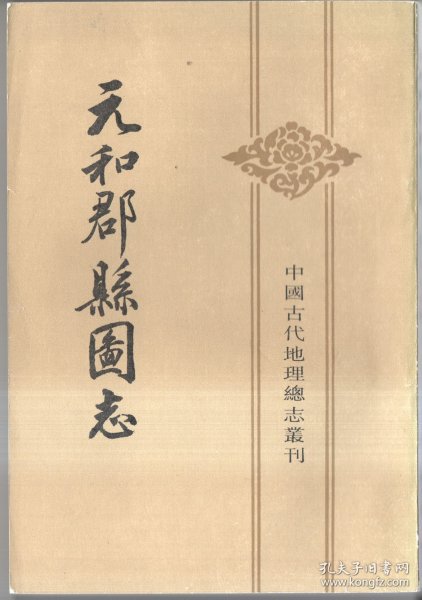 元和郡縣圖志
中國古代地理總志叢刊
孔夫子旧书网
www.kongfz.com